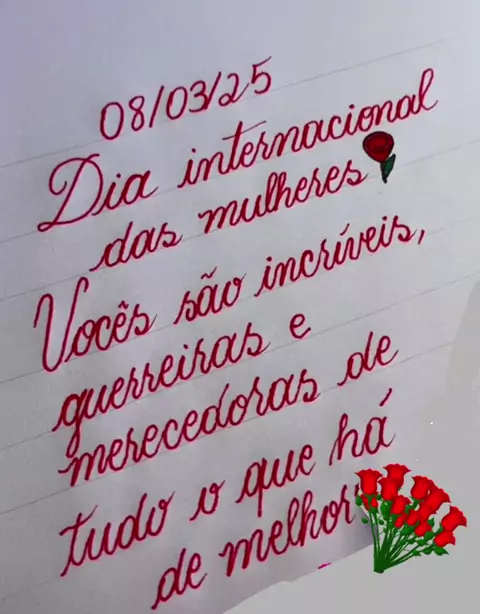 08/03/25
Dia internacional
das mulheres
Vocês são incríveis,
guerreiras e
merecedoras de
tudo o que há
de melhor